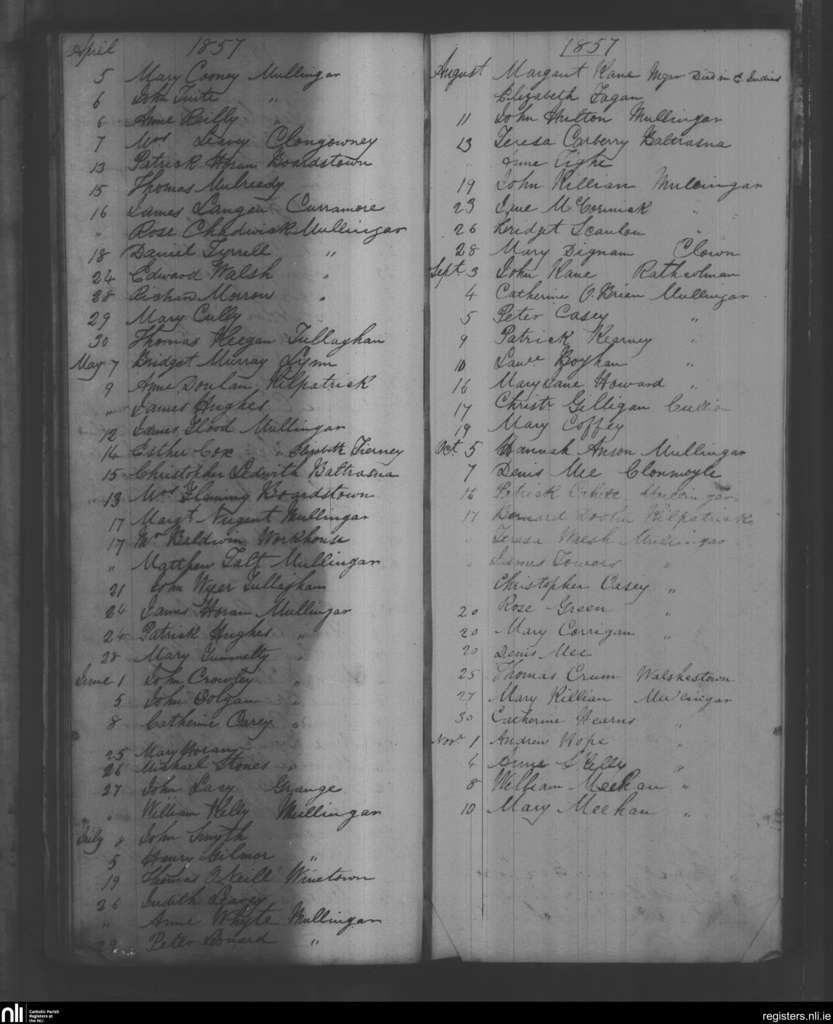 April 1857
5 Mary Cooney Mullingar
6 John Tuite "
6 Anne Reilly "
7 Mrs Leavy Clongowney
13 Patrick Horan Boardstown
15 Thomas Mulready
16 James Langan Curramore
" Rose Chadwick Mullingar
18 Daniel Tyrrell "
24 Edward Walsh "
28 Morrow "
29 Mary Cully
30 Thomas Keegan Tullaghan
May 7 Bridget Murray Lynn
9 Anne Kilpatrick
" James Hughes
12 James Flood Mullingar
14 Esther Cox " Elizabeth Tierney
15 Christopher Ledwith Baltrasna
13 Mrs Fleming Boardstown
17 Margt Nugent Mullingar
17 Mr Baldwin Workhouse
" Matthew Talt Mullingar
21 John Wyer Tullaghan
24 James Horan Mullingar
24 Patrick Hughes "
28 Mary "
June 1 John Crowley "
5 John Colgan "
8 Catherine Carey "
25 Mary Horan
26 Michael Stones "
27 John Lacy Grange
" William Kelly Mullingar
July John Smyth
5 Henry Gilmor "
19 Thomas O'Neill Winetown
26 Judith Leavey
" Anne Whyte Mullingar
29 Peter "
1857
August Margaret Kane Mgar Died in E Indies
Elizabeth Fagan
11 John Shelton Mullingar
13 Teresa Carberry Baltrasna
" Anne Tighe
19 John Killian Mullingar
23 Jane McCormick "
26 Bridget Scanlon "
28 Mary Dignam Clown
Sept 3 John Kane
4 Catherine O'Brien Mullingar
5 Peter Casey "
9 Patrick Kearney "
10 Lawce Boyhan "
16 Mary Jane Howard "
17 Christr Gilligan
19 Mary Coffey
Oct 5 Hannah Anson Mullingar
7 Denis Mee Clonmoyle
16 Patrick Mullingar
17 Bernard Kilpatrick
" Teresa Walsh Mullingar
" James Towers "
Christopher Casey "
20 Rose Green "
20 Mary Corrigan "
20 Denis Mee
25 Thomas Crum Walshestown
27 Mary Killian Mullingar
30 Catherine Hearns "
Novr 1 Andrew Hope "
6 Anne "
8 William Meehan "
10 Mary Meehan "
nli Catholic Parish
Registers at
the NLI
registers.nli.ie